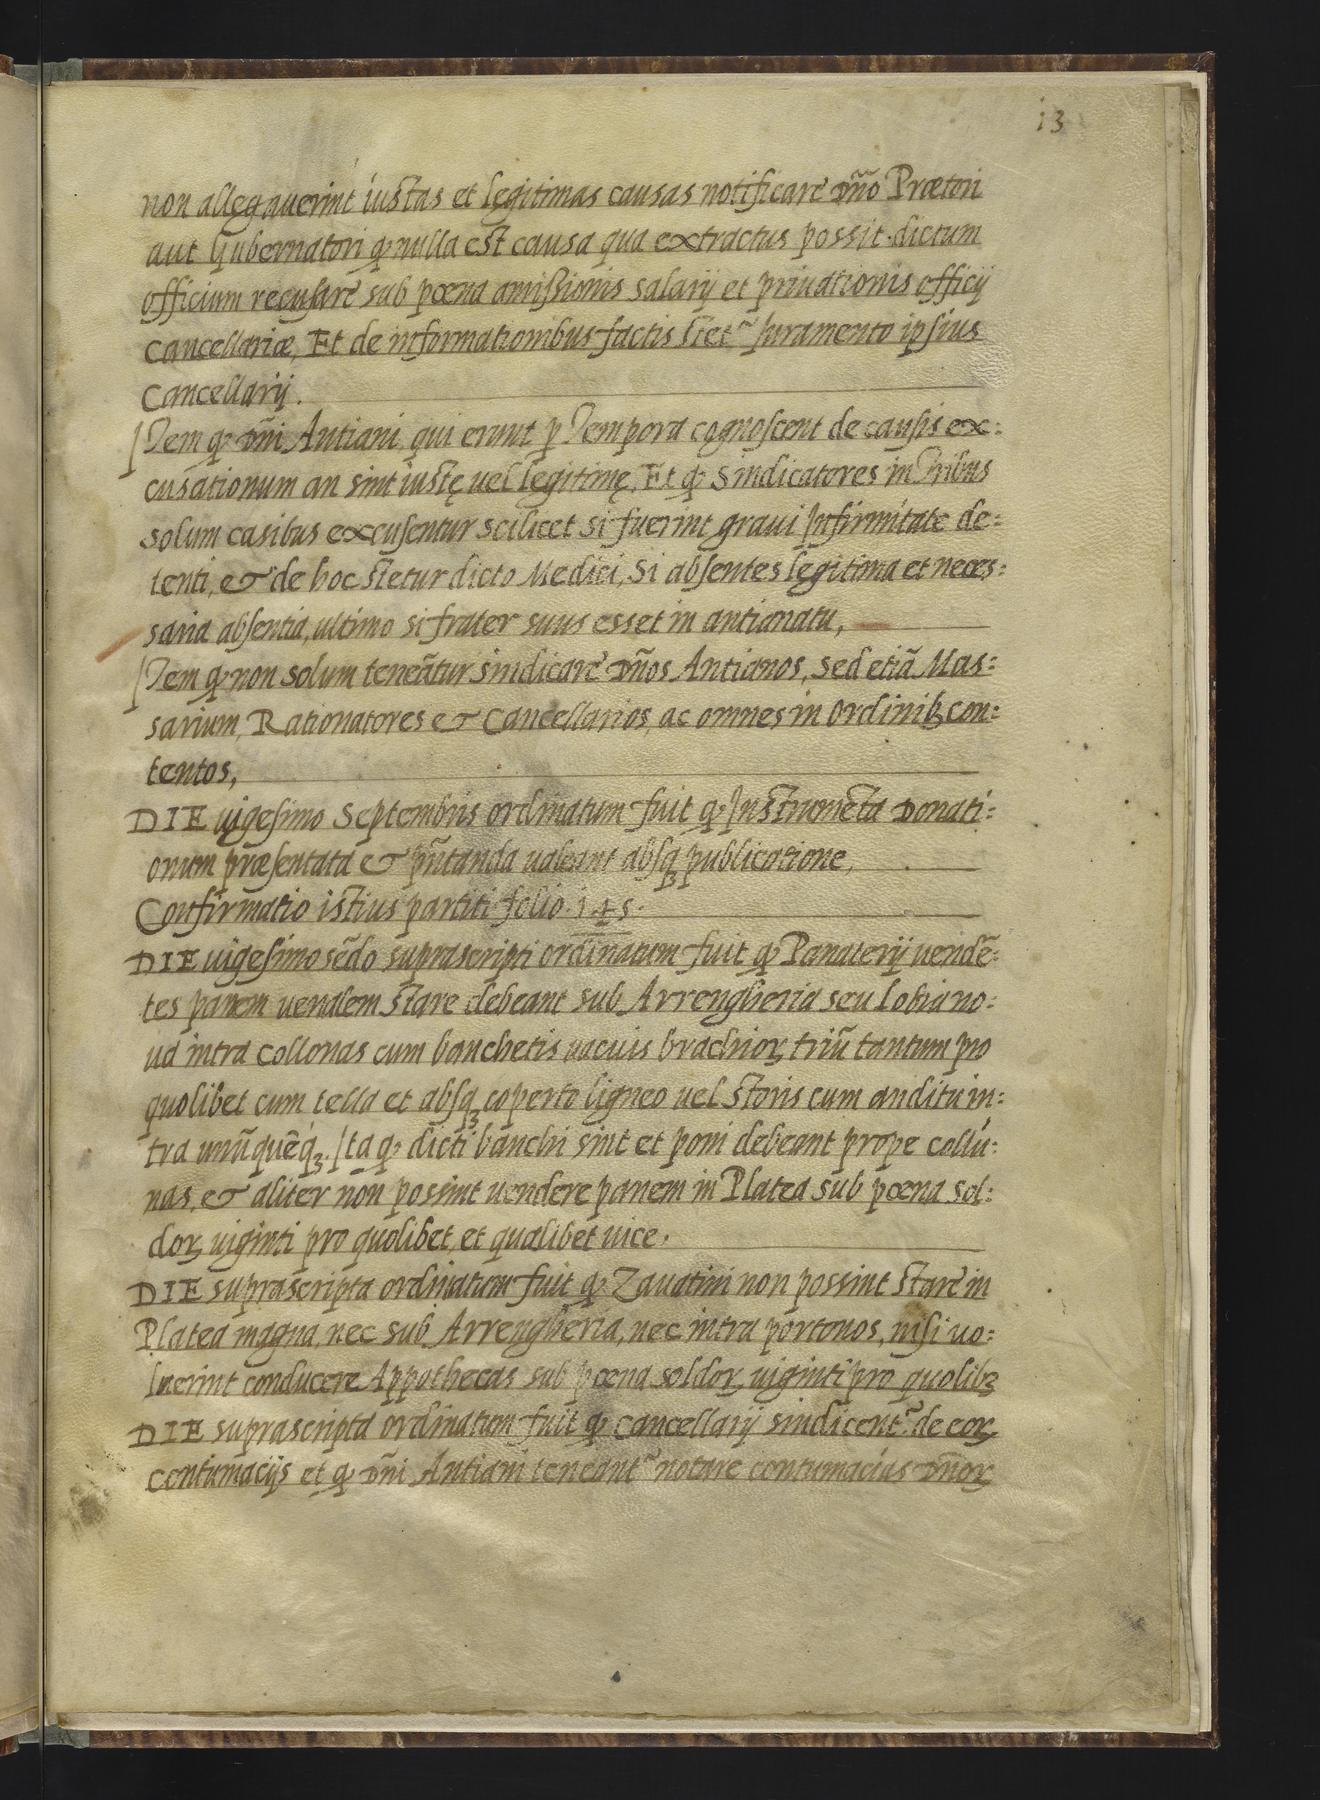 13
non allegauerint iustas et legitimas causas notificare Dño Prætori
aut Gubernatori q̃ nulla est causa qua extractus possit dictum
officium recusare sub pœna amissionis salarij et priuationis officij
Cancellariæ, Et de informationibus factis stet~ Iuramento ipsius
Cancellarij.
Item q̃ Dñi Antiani, qui erunt p Tempora cognoscent de causis ex=
cusationum an sint iustę uel legitimę, Et q̃ Sindicatores in Tribus
solum casibus excusentur scilicet si fuerint graui Infirmitate de=
tenti, & de hoc stetur dicto Medici, Si absentes legitima et neces=
saria absentia, ultimo si frater suus esset in antianatu,
Item q̃ non solum teneãtur sindicare Dños Antianos, sed etiã Mas=
sarium, Rationatores & Cancellarios, ac omnes in Ordinibꝫ con=
tentos,
DIE uigesimo Septembris ordinatum fuit q̃ Instrumēta Donati=
onum præsentata & pñtanda ualeant absqꝫ publicatione,
Confirmatio istius partiti folio. 145.
DIE uigesimo sēdo suprascripti ordinatum fuit q̃ Panaterij uendē=
tes panem uenalem stare debeant sub Arrengheria seu lobia no=
ua intra collonas cum banchetis uacuis brachioꝝ triū tantum pro
quolibet cum tella et absqꝫ coperto ligneo uel storis cum anditu in=
tra unūquēqꝫ. Ita q̃ dicti banchi sint et poni debeant prope collu=
nas, & aliter non possint uendere panem in Platea sub pœna sol=
doꝝ uiginti pro quolibet, et qualibet uice.
DIE suprascripta ordinatum fuit q̃ Zauatini non possint stare in
Platea magna, nec sub Arrengheria, nec intra portonos, nisi uo=
luerint conducere Appothecas sub pœna soldoꝝ uiginti pro quolibꝫ
DIE suprascripta ordinatum fuit q̃ Cancellarij sindicent~ de eoꝝ
contumacijs et q̃ Dñi Antiani teneant~ notare contumacias Dñoꝝ